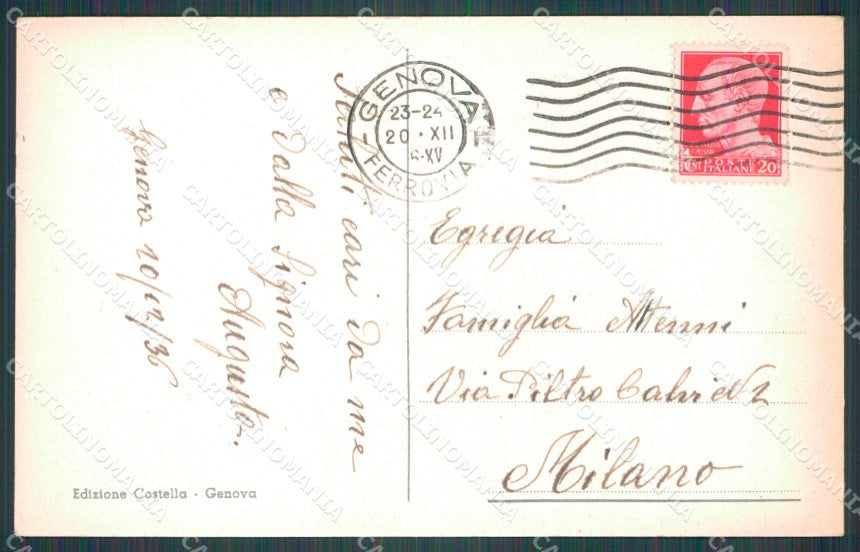 Saluti cari da me
e dalla Signora
Augusto.
Genova 20/12/36
Edizione Costella - Genova
GENOVA
FERROVIA
23-24
20 · XII
6-XV
POSTE
ITALIANE
CENT 20
Egregia
Famiglia
Via Pietro Calvi N 2
Milano
CARTOLINOMANIA